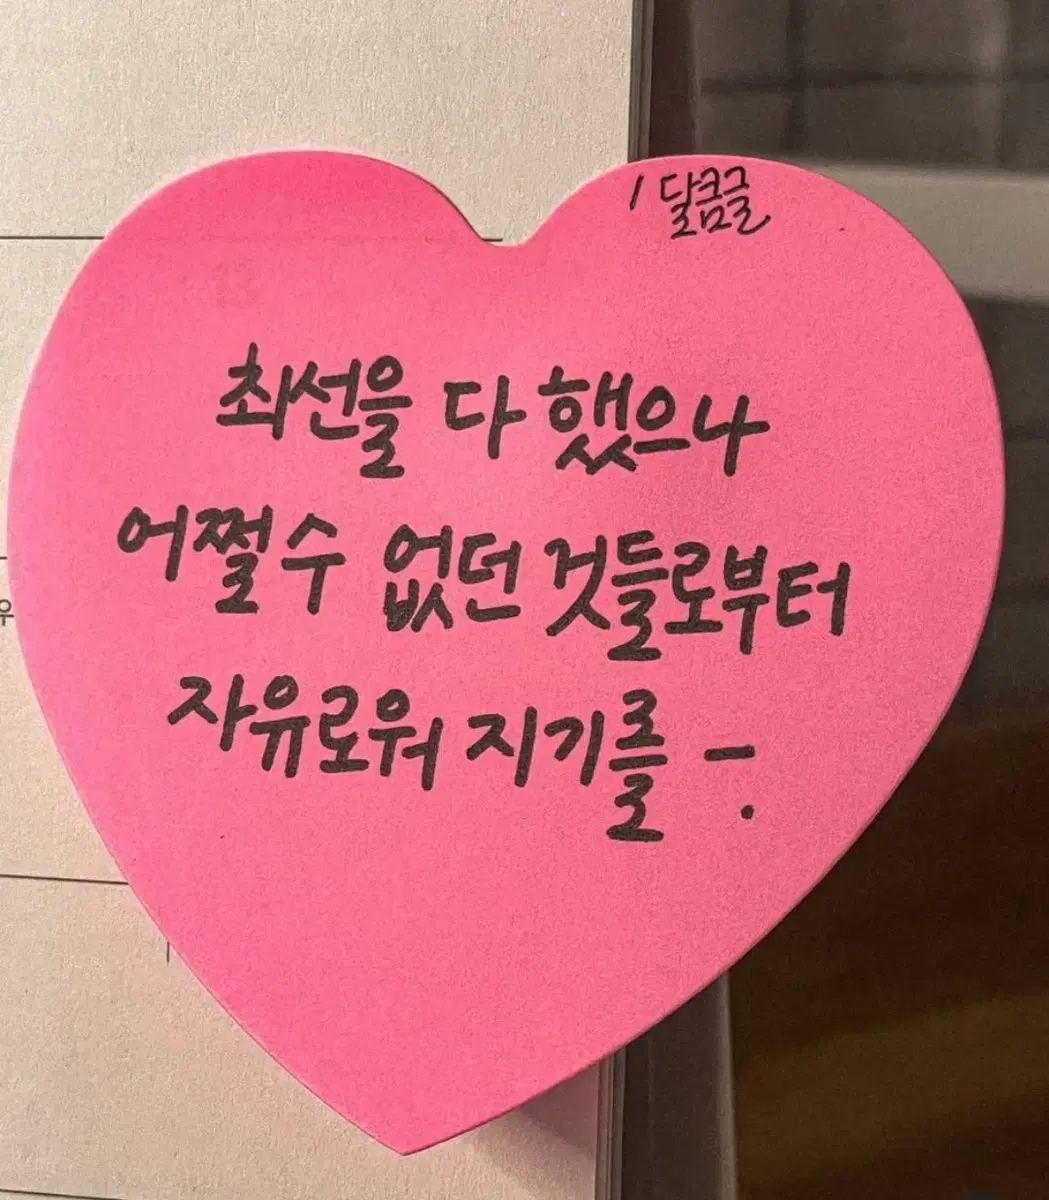 / 달콤글
최선을 다 했으나
어쩔 수 없던 것들로부터
자유로워 지기를 -.
우